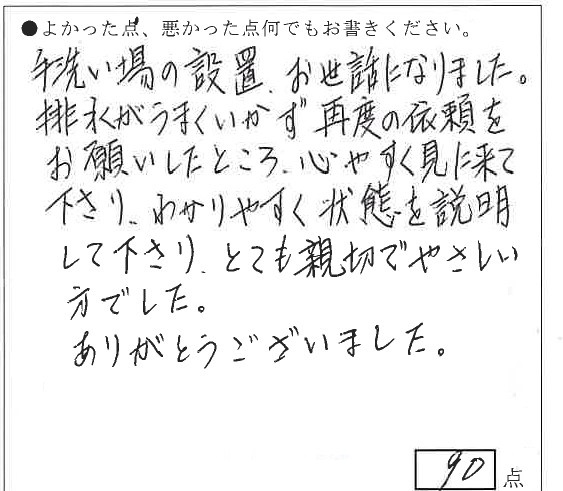 ●よかった点、悪かった点何でもお書きください。
手洗い場の設置、お世話になりました。
排水がうまくいかず再度の依頼を
お願いしたところ、心やすく見に来て
下さり、わかりやすく状態を説明
して下さり、とても親切でやさしい
方でした。
ありがとうございました。
90点